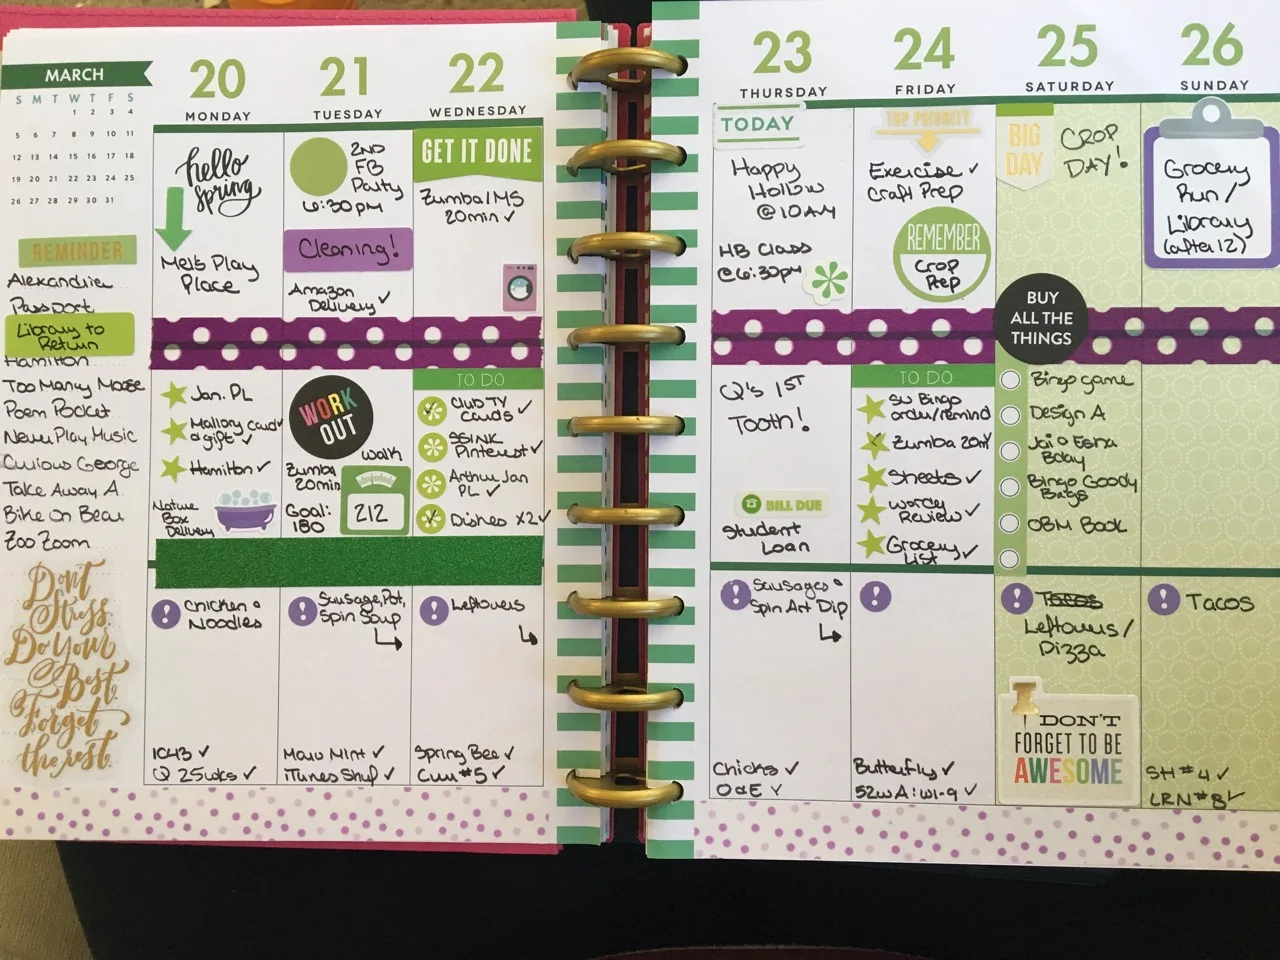 MARCH
S M T W T F S
1 2 3 4
5 6 7 8 9 10 11
12 13 14 15 16 17 18
19 20 21 22 23 24 25
26 27 28 29 30 31
REMINDER
Passport
Library to
Return
Hamilton
Too Many Moose
Poem Pocket
Music
Curious George
Take Away A
Bike On Bear
Zoo Zoom
Don't
Stress.
Do Your
Best.
Forget
the rest.
20
MONDAY
hello
Spring
Mel's Play
Place
Jan. PL
Mallory card
& gift ✓
Hamilton ✓
Nature
Box
Delivery
Chicken &
Noodles
1C43 ✓
Q 25wks ✓
21
TUESDAY
2ND
FB
Party
6:30pm
Cleaning!
Amazon
Delivery ✓
WORK
OUT
walk
Zumba
20min
Goal:
180
212
Sausage, Pot,
Spin Soup
Mint ✓
iTunes ✓
22
WEDNESDAY
GET IT DONE
Zumba/MS
20min ✓
TO DO
Club TY
Cards ✓
SSINK
Pinterest ✓
Arthur Jan
PL ✓
Dishes X2 ✓
Leftovers
Spring Bee ✓
#5 ✓
23
THURSDAY
TODAY
Happy
Hollow
@10AM
HB Class
@6:30pm
Q's 1ST
Tooth!
BILL DUE
Student
Loan
Sausages &
Spin Art Dip
Chicks ✓
24
FRIDAY
TOP PRIORITY
Exercise ✓
Craft Prep
REMEMBER
Crop
Prep
TO DO
SU Bingo
order/remind
Zumba 20m
Sheets ✓
Review ✓
Grocery
List ✓
Butterfly ✓
52WA:W1-9 ✓
25
SATURDAY
BIG
DAY
CROP
DAY!
BUY
ALL THE
THINGS
Bingo game
Design A
Bingo Goody
Bags
OBM Book
Tacos
Leftovers/
Pizza
DON'T
FORGET TO BE
AWESOME
26
SUNDAY
Grocery
Run/
Library
(after 12)
Tacos
SH #4 ✓
LRN #8 ✓